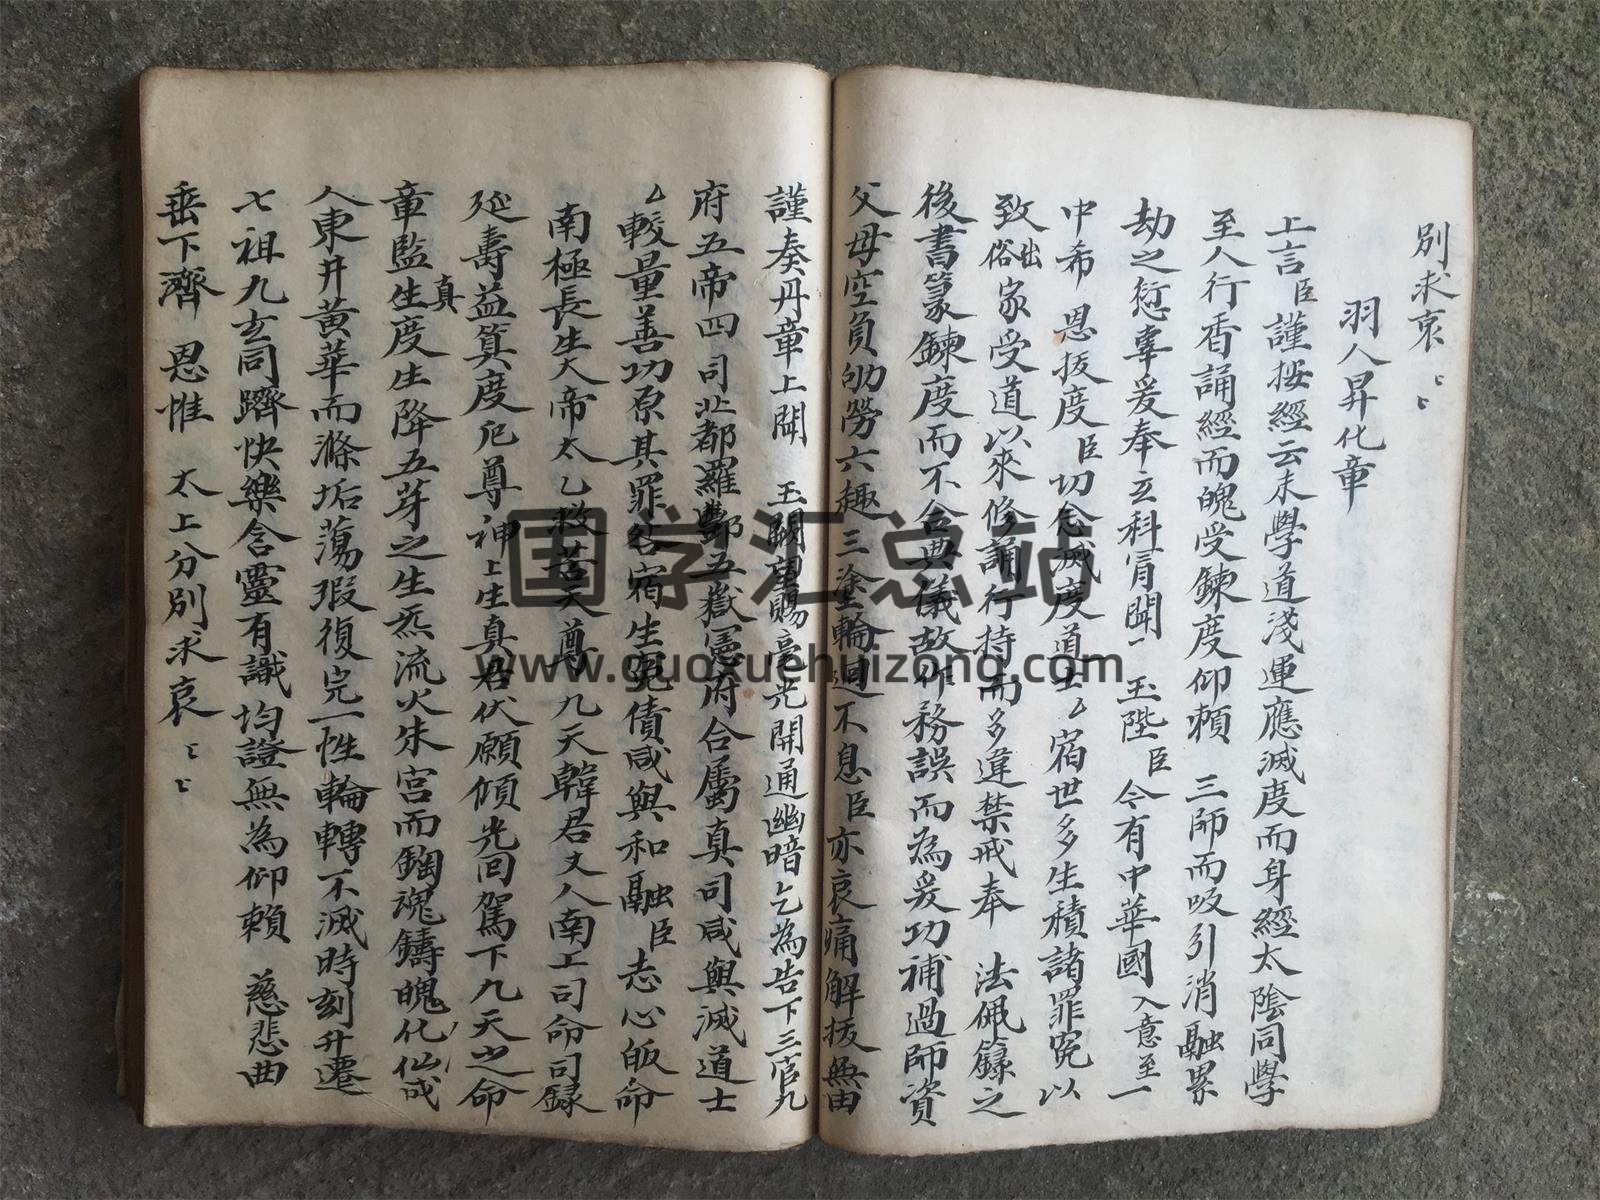 別求哀〻〻
羽人昇化章
上言臣謹按經云未學道淺運應滅度而身經太陰同學
至人行香誦經而魄受鍊度仰賴 三師而吸引消融累
劫之愆辜爰奉立科胥聞 玉陛臣今有中華國入意至一
中希 恩拔度臣切念滅度道士乙宿世多生積諸罪冤以
致出俗家受道以來修誦行持而多違禁戒奉 法佩籙之
後書篆鍊度而不合典儀故作務誤而為爰功補過師資
父母空負劬勞六趣三塗輪迴不息臣亦哀痛解拔無由
謹奏丹章上聞 玉闕望賜毫光開通幽暗乞為告下三官九
府五帝四司北都羅酆五嶽憲府合屬真司咸與滅道士
乙較量善功原其罪咎宿生冤債咸與和融臣志心皈命
南極長生大帝太乙救苦天尊九天韓君丈人南上司命司錄
延壽益算度厄尊神上生真君伏願傾光回駕下九天之命
真
章監生度生降五芽之生炁流火朱宮而鋼魂鑄魄化仙成
人東井黃華而滌垢蕩瑕復完一性輪轉不滅時刻升遷
七祖九玄同躋快樂含靈有識均證無為仰賴 慈悲曲
垂下濟 恩惟 太上分別求哀〻〻
国学汇总站
www.guoxuehuizong.com